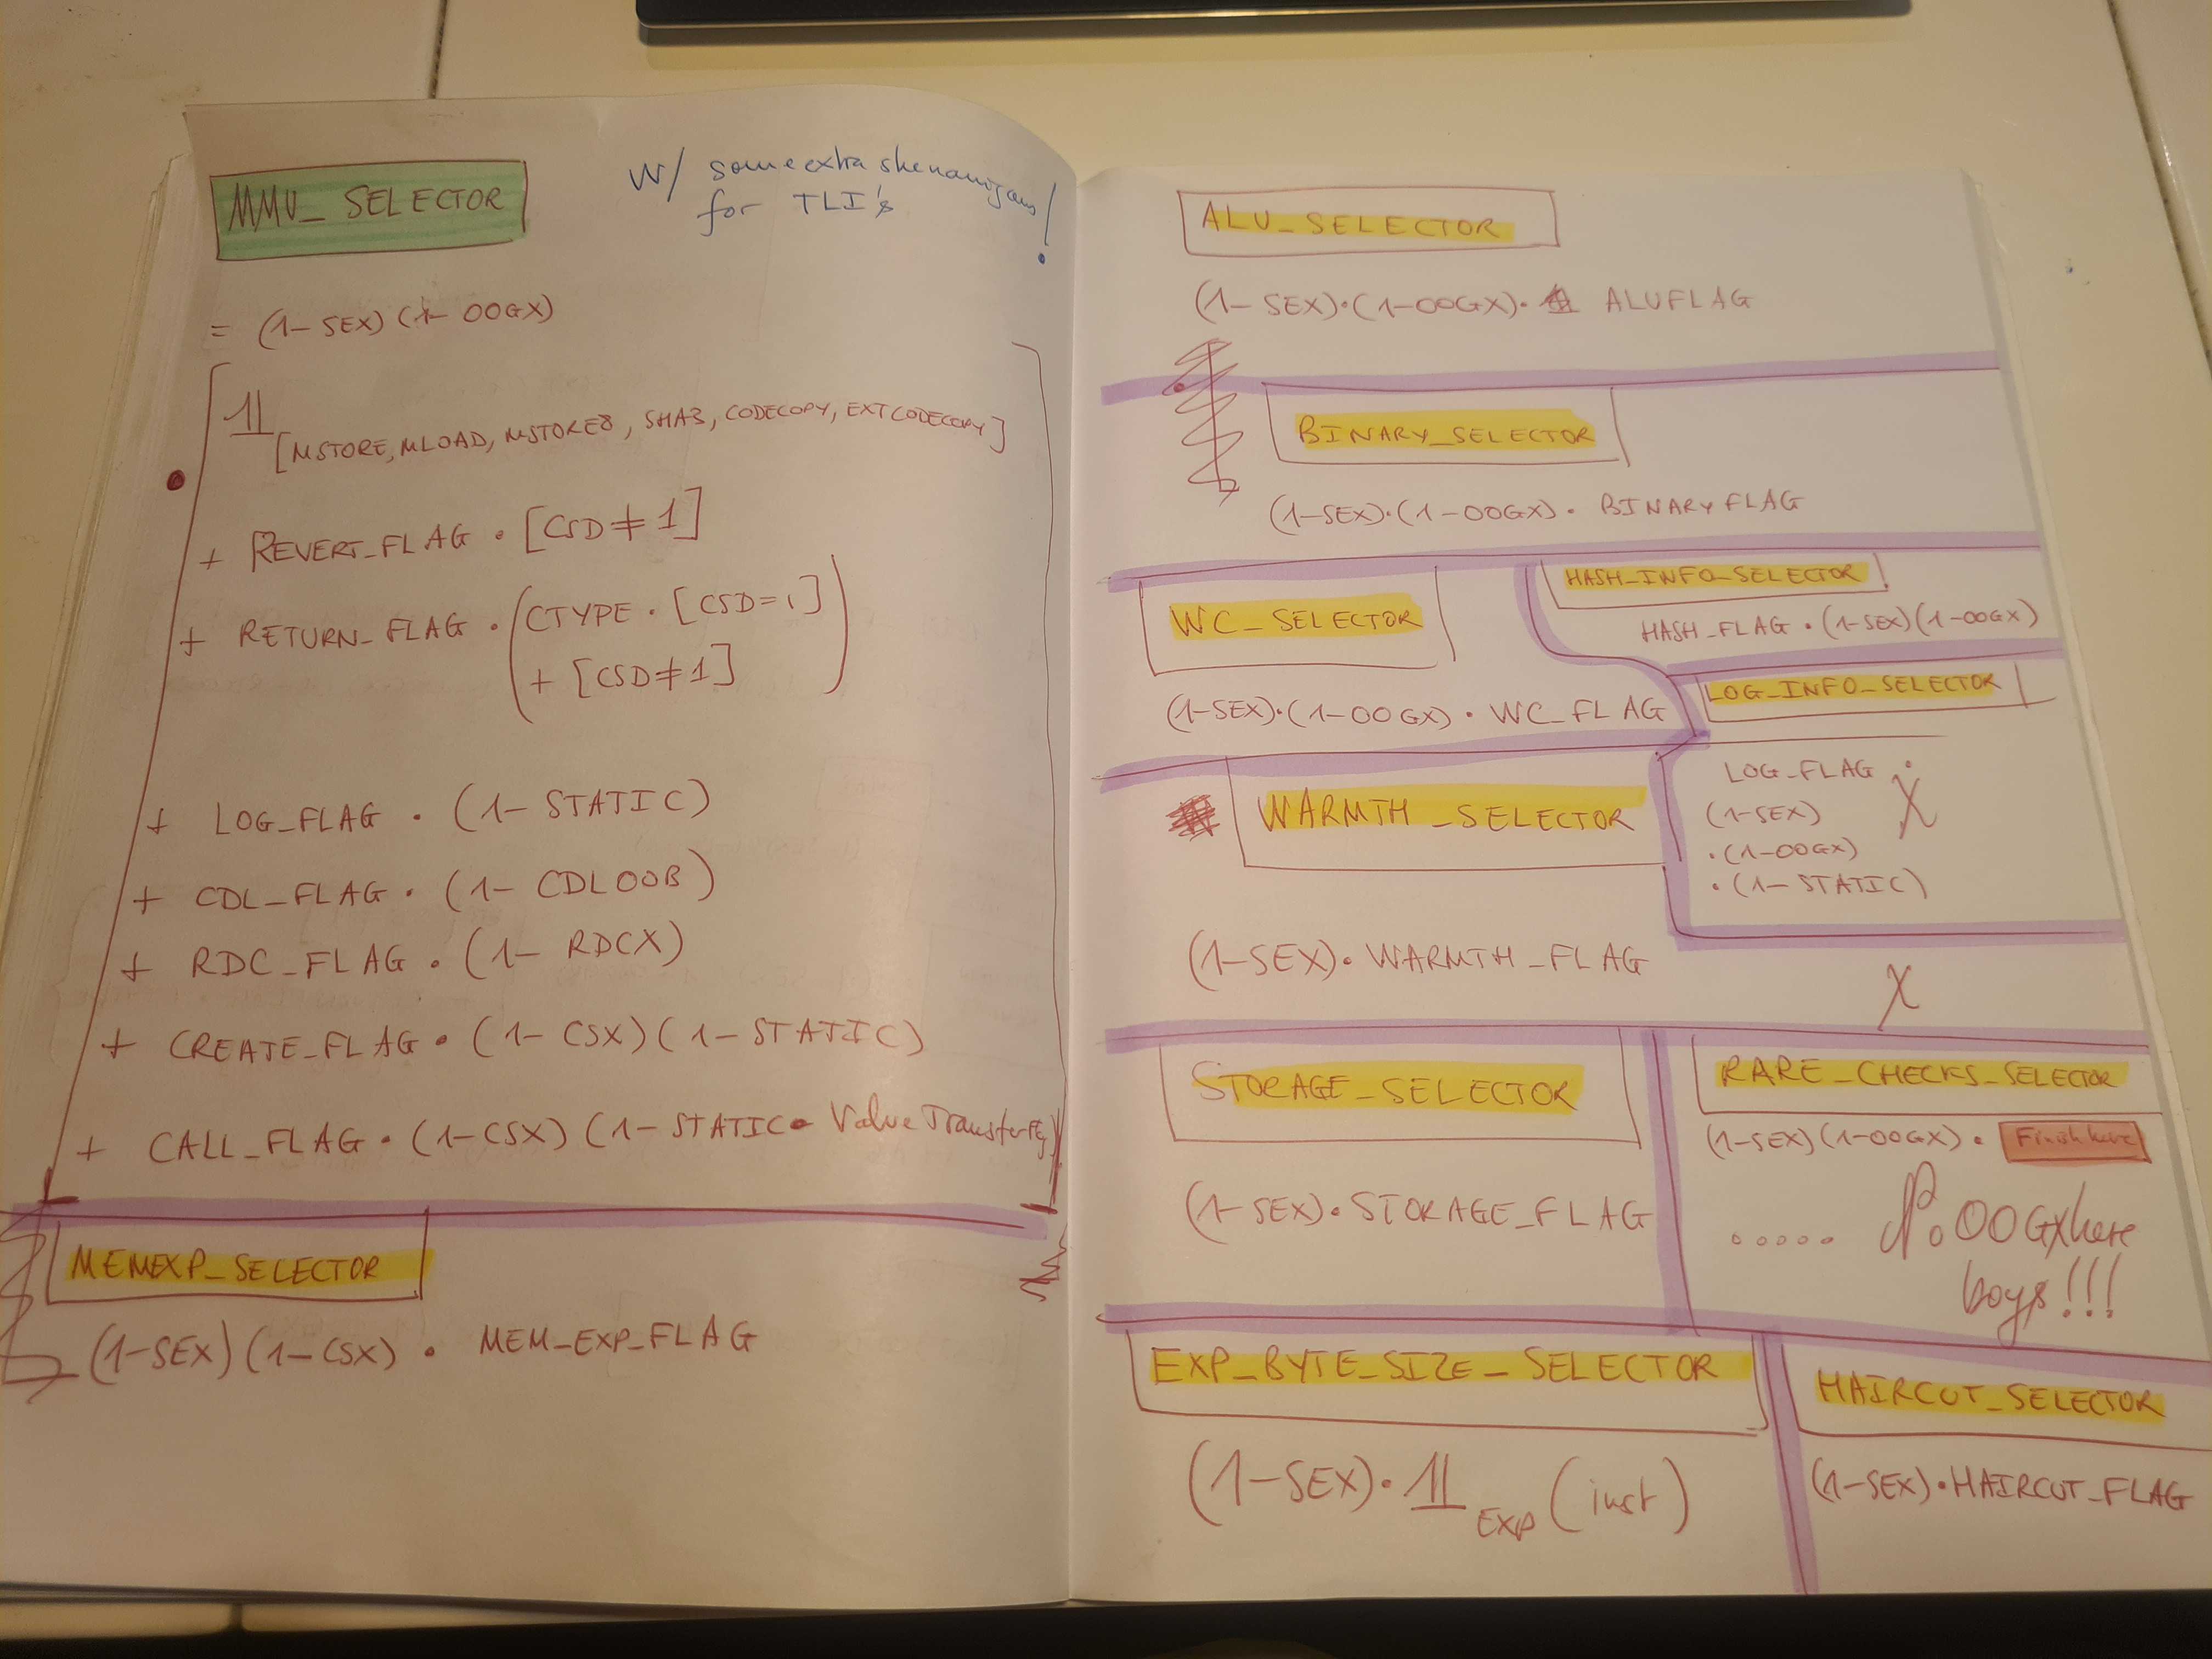 MMU_SELECTOR
W/ some extra shenanigans
for TLI's !
= (1-SEX)(1-OOGX)
𝟙
[MSTORE, MLOAD, MSTORE8, SHA3, CODECOPY, EXTCODECOPY]
+ REVERT_FLAG · [CSD≠1]
+ RETURN_FLAG · (CTYPE · [CSD=1]
+ [CSD≠1])
+ LOG_FLAG · (1-STATIC)
+ CDL_FLAG · (1-CDLOOB)
+ RDC_FLAG · (1-RDCX)
+ CREATE_FLAG · (1-CSX)(1-STATIC)
+ CALL_FLAG · (1-CSX)(1-STATIC·
MEMEXP_SELECTOR
(1-SEX)(1-CSX) · MEM_EXP_FLAG
ALU_SELECTOR
(1-SEX)·(1-OOGX)· ALUFLAG
BINARY_SELECTOR
(1-SEX)·(1-OOGX)· BINARYFLAG
WC_SELECTOR
(1-SEX)·(1-OOGX)· WC_FLAG
HASH_INFO_SELECTOR
HASH_FLAG · (1-SEX)(1-OOGX)
LOG_INFO_SELECTOR
LOG_FLAG ·
(1-SEX)
·(1-OOGX)
·(1-STATIC)
X
WARMTH_SELECTOR
(1-SEX)· WARMTH_FLAG
X
STORAGE_SELECTOR
(1-SEX)· STORAGE_FLAG
RARE_CHECKS_SELECTOR
(1-SEX)(1-OOGX)· Finish here
..... No OOGX here
boys!!!
EXP_BYTE_SIZE_SELECTOR
(1-SEX)· 𝟙 EXP (inst)
HAIRCUT_SELECTOR
(1-SEX)·HAIRCUT_FLAG